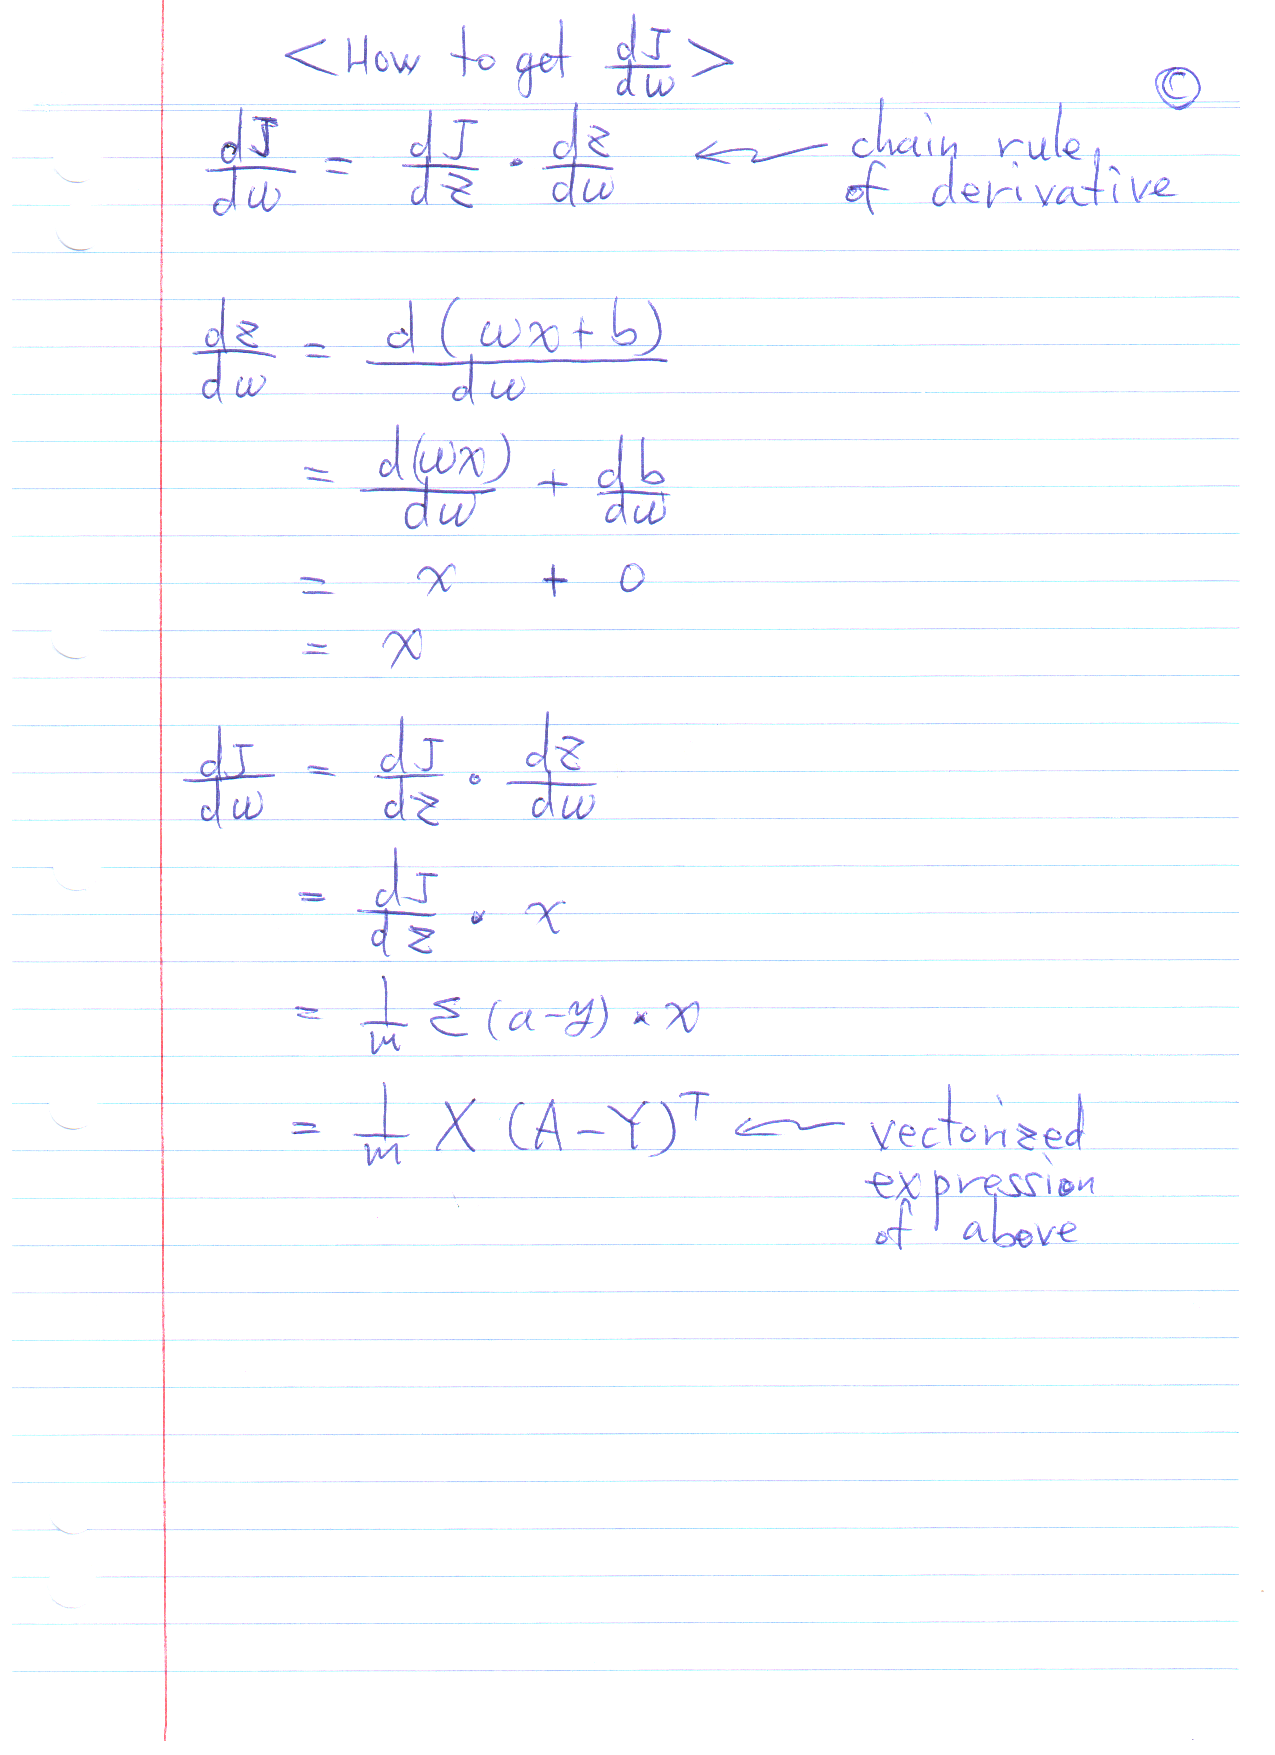 < How to get dJ/dw >
©
dJ/dw = dJ/dz · dz/dw ← chain rule
of derivative
dz/dw = d(wx+b)/dw
= d(wx)/dw + db/dw
= x + 0
= x
dJ/dw = dJ/dz · dz/dw
= dJ/dz · x
= 1/m Σ (a-y) · x
= 1/m X (A-Y)^T ← vectorized
expression
of above